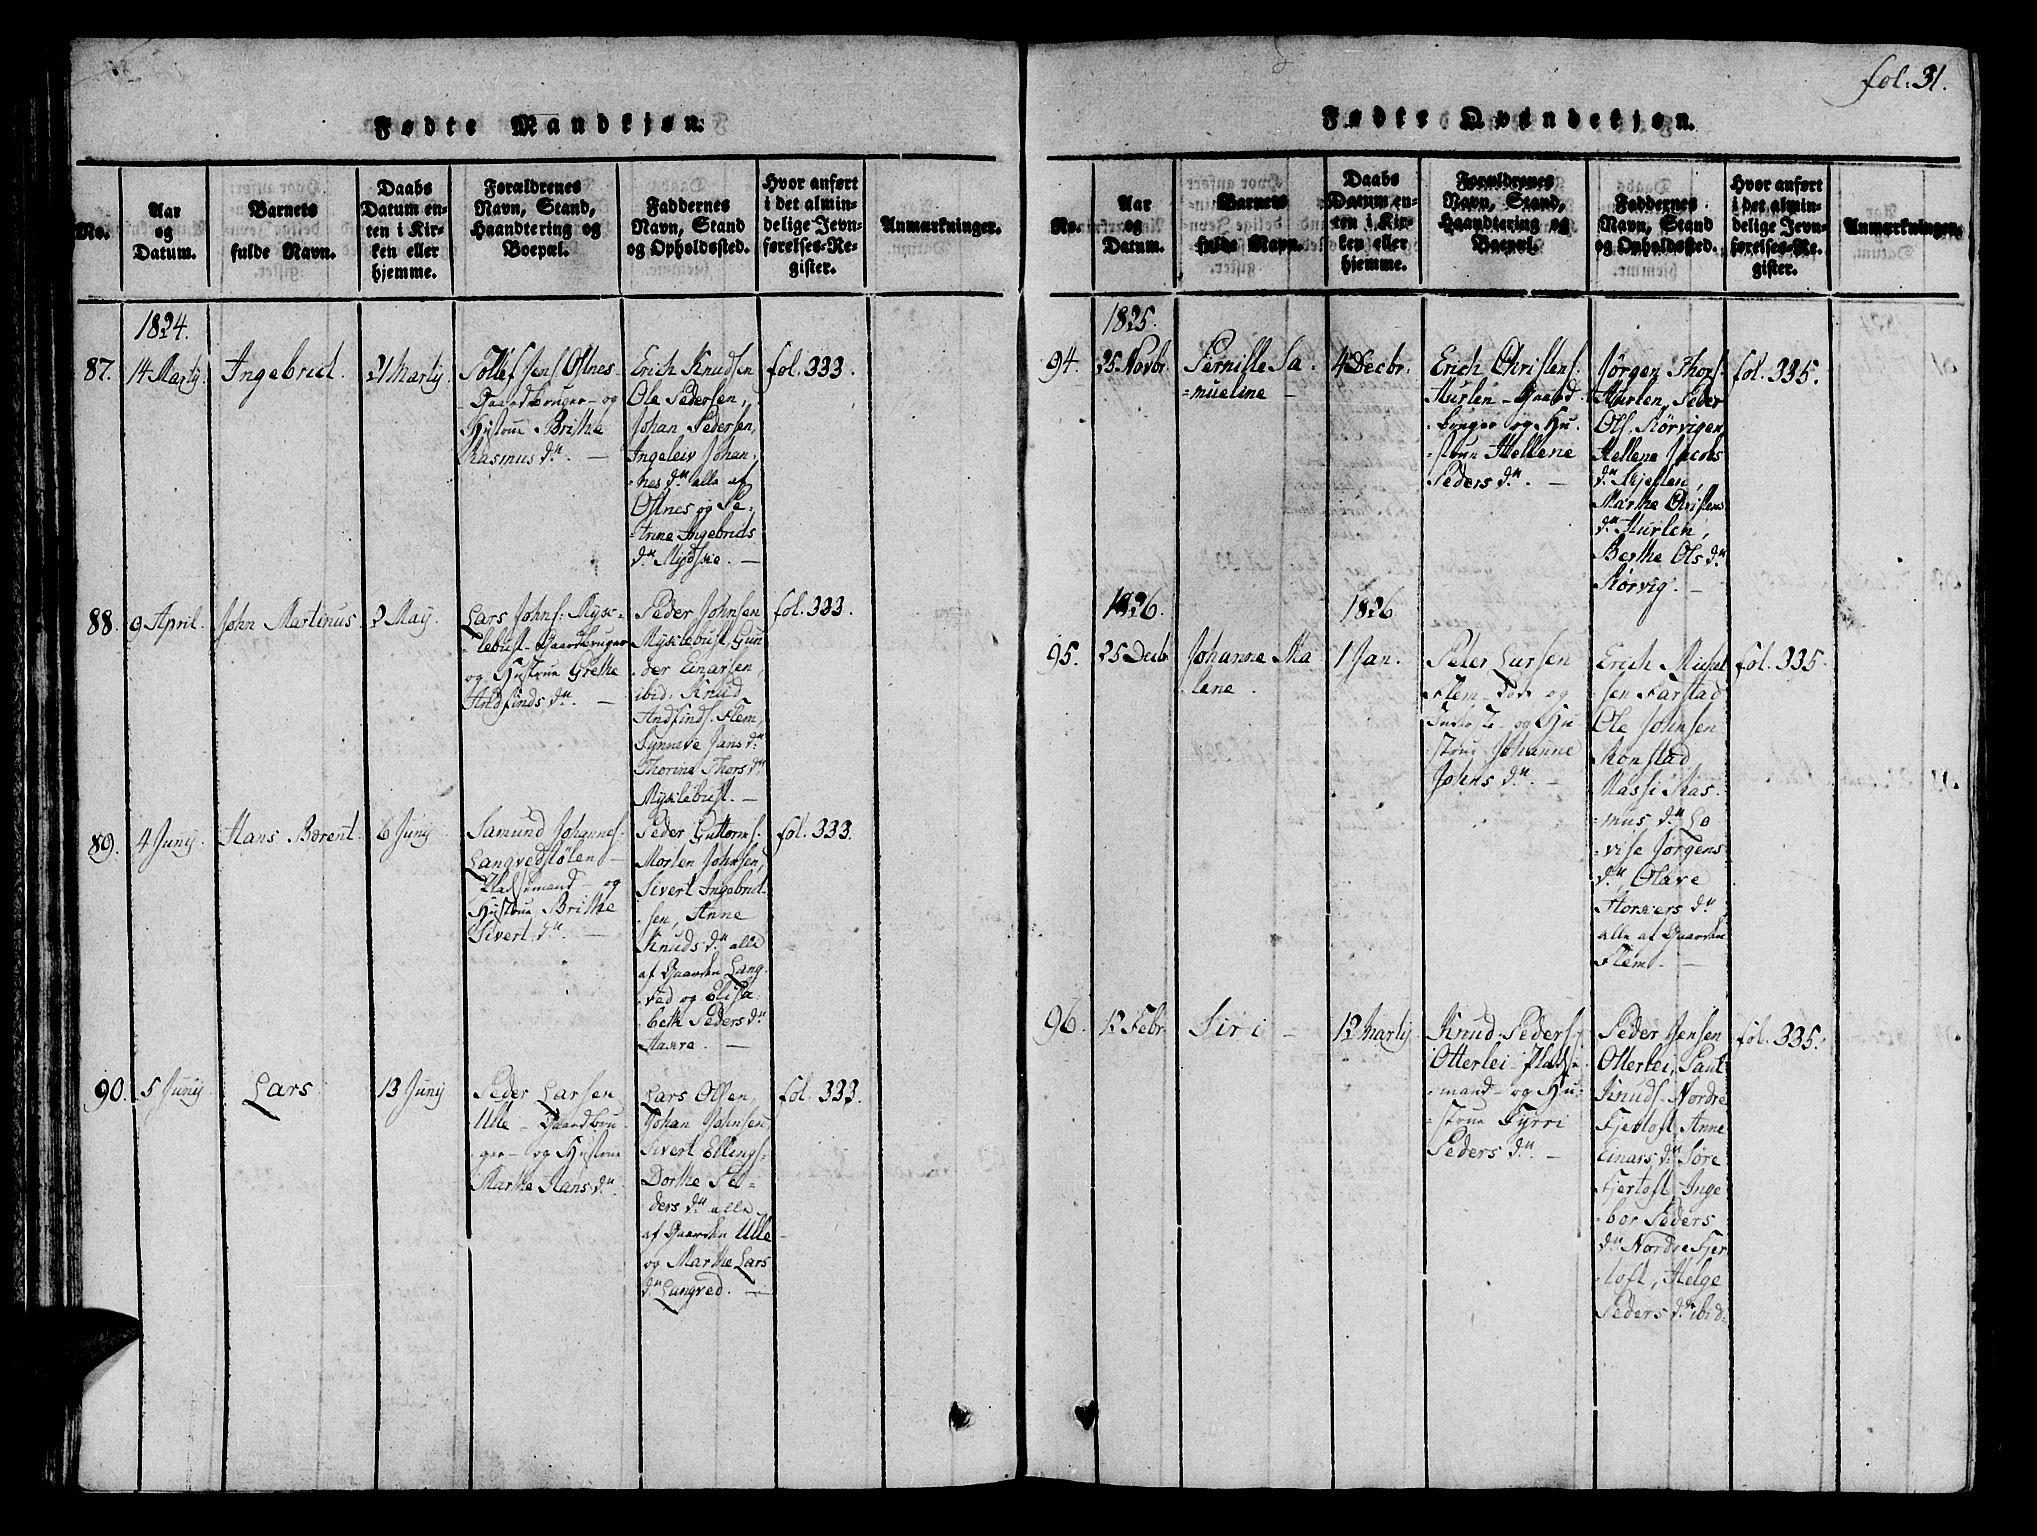 fol. 31.
Fødte Mandkjøn.
No.
Aar
og
Datum.
Barnets
fulde Navn.
Daabs
Datum en-
ten i Kir-
ken eller
hjemme.
Forældrenes
Navn, Stand,
Haandtering og
Boepæl.
Faddernes
Navn, Stand
og Opholdssted.
Hvor anført
i det almin-
delige Jevn-
førelses-Re-
gister.
Anmærkninger.
1824.
87.
14 Martij.
Ingebrict.
21 Martij
Tollef Jens. Ostnes-
Gaardbruger - og
Hustrue Brithe
Rasmus dtr. -
Erich Knudsen
Ole Pedersen,
Johan Pedersen,
Ingeleiv Johan-
nes dtr alle af
Ostnes og Pe-
Anne Ingebricts
dtr Mydske. -
fol. 333.
88.
9 April.
John Martinus
2 May.
Lars Johns: Myk-
lebust - Gaardbruger
og Hustrue Grethe
Andfinds dtr. -
Peder Johnsen
Myklebust, Gun
der Einarsen,
ibid: Knud
Andfinds. Flem,
Synneve Jans dtr
Thorine Thors dtr
Myklebust. -
fol. 333.
89.
4 Junij.
Hans Berent.
6 Junij
Samund Johannes:
Langvedstølen -
Pladsemand - og
Hustrue Brithe
Sivert. dtr. -
Peder Guttorms.
Morten Johnsen,
Sivert Ingebrict-
sen, Anne
Knuds dtr alle
af Gaarden Lang-
ved og Elisa-
beth Peders dtr
Haure. -
fol. 333.
90.
5 Junij
Lars
13 Junij
Peder Larsen
Ulle - Gaardbru
ger - og Hustrue
Marthe Hans dtr.
Lars Olsen,
Johan Johnsen,
Sivert Ellings:
Dorthe Pe-
ders dtr alle
af Gaarden Ulle
og Marthe Lars
dtr Langved. -
fol. 333.
Fødte Qvindekjøn.
No.
Aar
og
Datum.
Barnets
fulde Navn.
Daabs
Datum en-
ten i Kir-
ken eller
hjemme.
Forældrenes
Navn, Stand,
Haandtering og
Boepæl.
Faddernes
Navn, Stand
og Opholdssted.
Hvor anført
i det almin-
delige Jevn-
førelses-Re-
gister.
Anmærkninger.
1825.
94.
25 Novbr
Pernille Sa
mueline -
4 Decbr.
Erich Christens.
Hurlen - Gaard
bruger og Hu-
strue Hellene
Peders dtr. -
Jørgen Thors.
Hurlen, Peder
Ols. Rørvigen,
Hellene Jacobs
dtr Skjelten,
Marthe Christens
dtr Hurlen,
Berthe Ols dtr
Rørvig. -
fol. 335.
1826.
1826
95.
25 Decb
Johanne Ma
lene.
1 Jan.
Peter Larsen
Flem - og
og Hu
strue Johanne
Johns dtr. -
Erich Michel
sen Farstad
Ole Johnsen
Rønstad
Massi Ras-
mus dtr Lo
vise Jørgens
dtr, Olave
dtr
alle af Gaarden
Flem. -
fol. 335.
96.
12 Febr.
Siri -
12 Martij
Knud Peders.
Otterlei - Pladse
mand - og Hu-
strue Fyrri
Peders dtr. -
Peder Jensen
Otterlei, Paul
Knuds. Nordre
Fjertoft, Anne
Einars dtr Søre
Fjertoft, Inge
bor Peders
dtr Nordre Fjer
toft, Helge
Peders dtr ibid.
fol. 335.